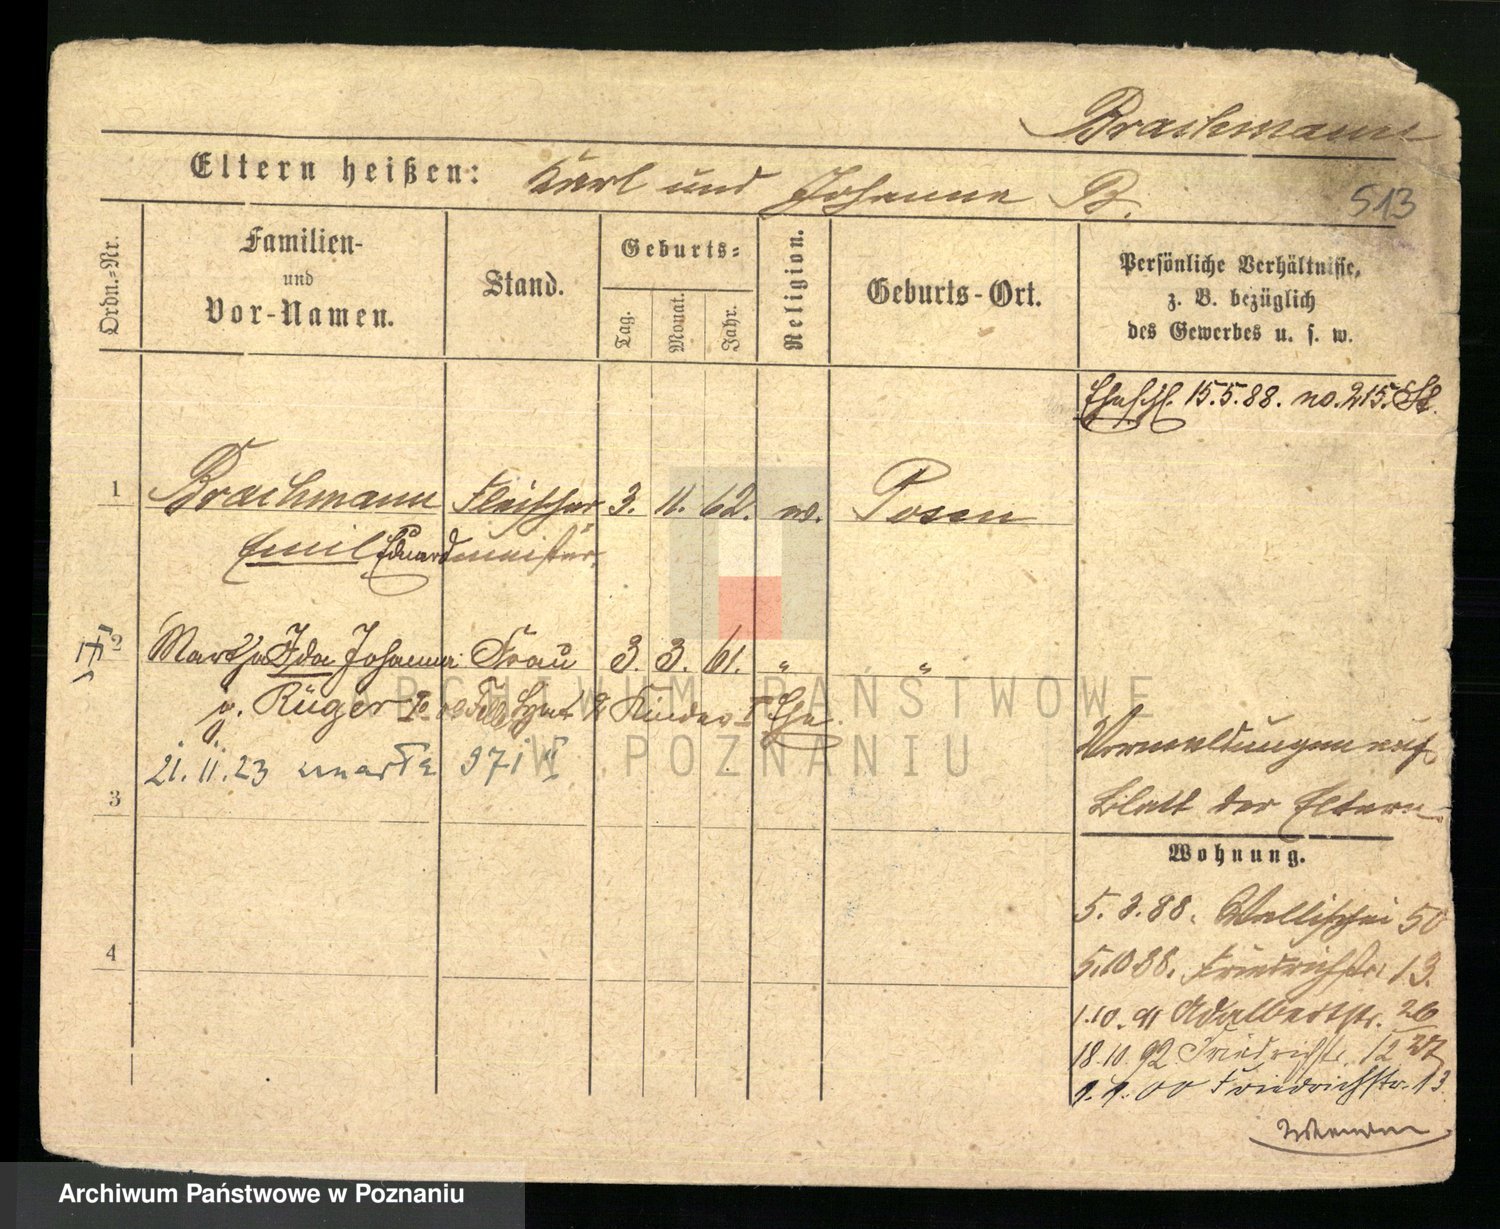 Brachmann
Eltern heißen: Karl und Johanne B.
513
Ordn.-Nr.
Familien-
und
Vor-Namen.
Stand.
Geburts-
Tag.
Monat.
Jahr.
Religion.
Geburts-Ort.
Persönliche Verhältnisse,
z. B. bezüglich
des Gewerbes u. s. w.
Ehesch. 15.5.88. no. 215.
1 Brachmann Fleischer 3. 11. 62. ev. Posen
Emil Eduard meister
2 Martha Ida Johanna Frau 3. 3. 61. " "
g. Rüger Kinder I Ehe
21.11.23 umarła
3
Vermeldungen auf
Blatt der Eltern
Wohnung.
5.3.88. Wallischei 50
4
5.10.88. Friedrichstr. 13.
1.10.91 Adalbertstr. 26
18.10.92 Friedrichstr. 12
1.4.00 Friedrichstr. 13
ARCHIWUM PAŃSTWOWE
W POZNANIU
Archiwum Państwowe w Poznaniu